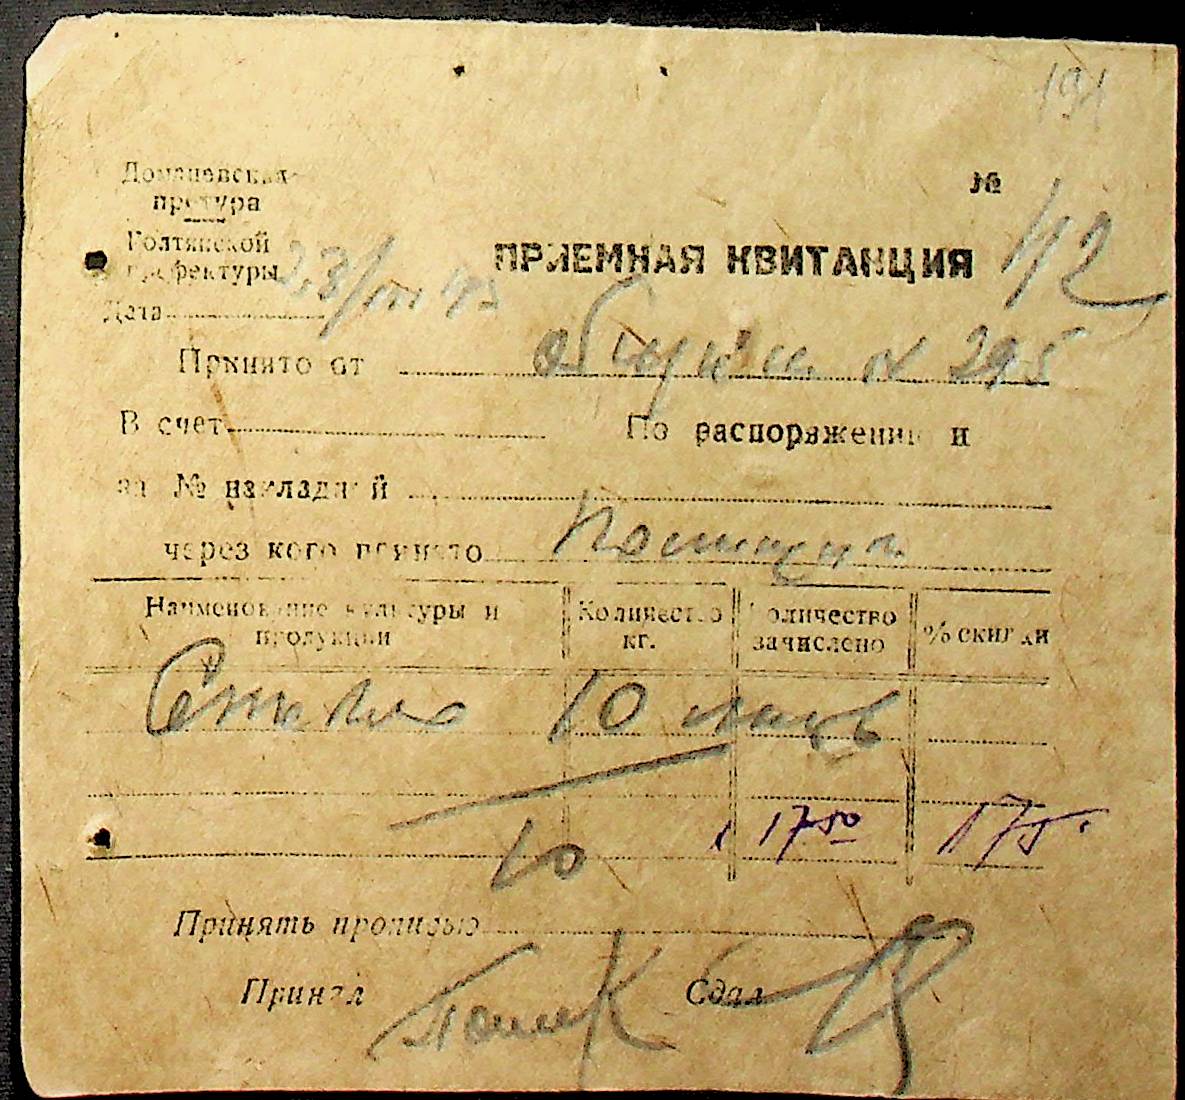 191
Доманевская
претура
Голтянской
префектуры
№ 42
ПРИЕМНАЯ КВИТАНЦИЯ
Дата 23/VIII 43
Принято от общины № 295
В счет По распоряжению и
за № накладной
через кого принято
Наименование культуры и продукции Количество кг. Количество зачислено % скидки
10
10 1 17-50 175.
Принять прописью
Принял Сдал